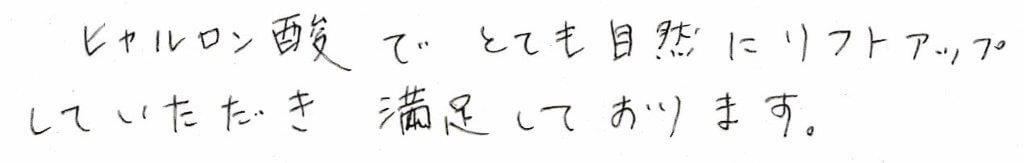 ヒヤルロン酸でとても自然にリフトアップ
していただき満足しております。